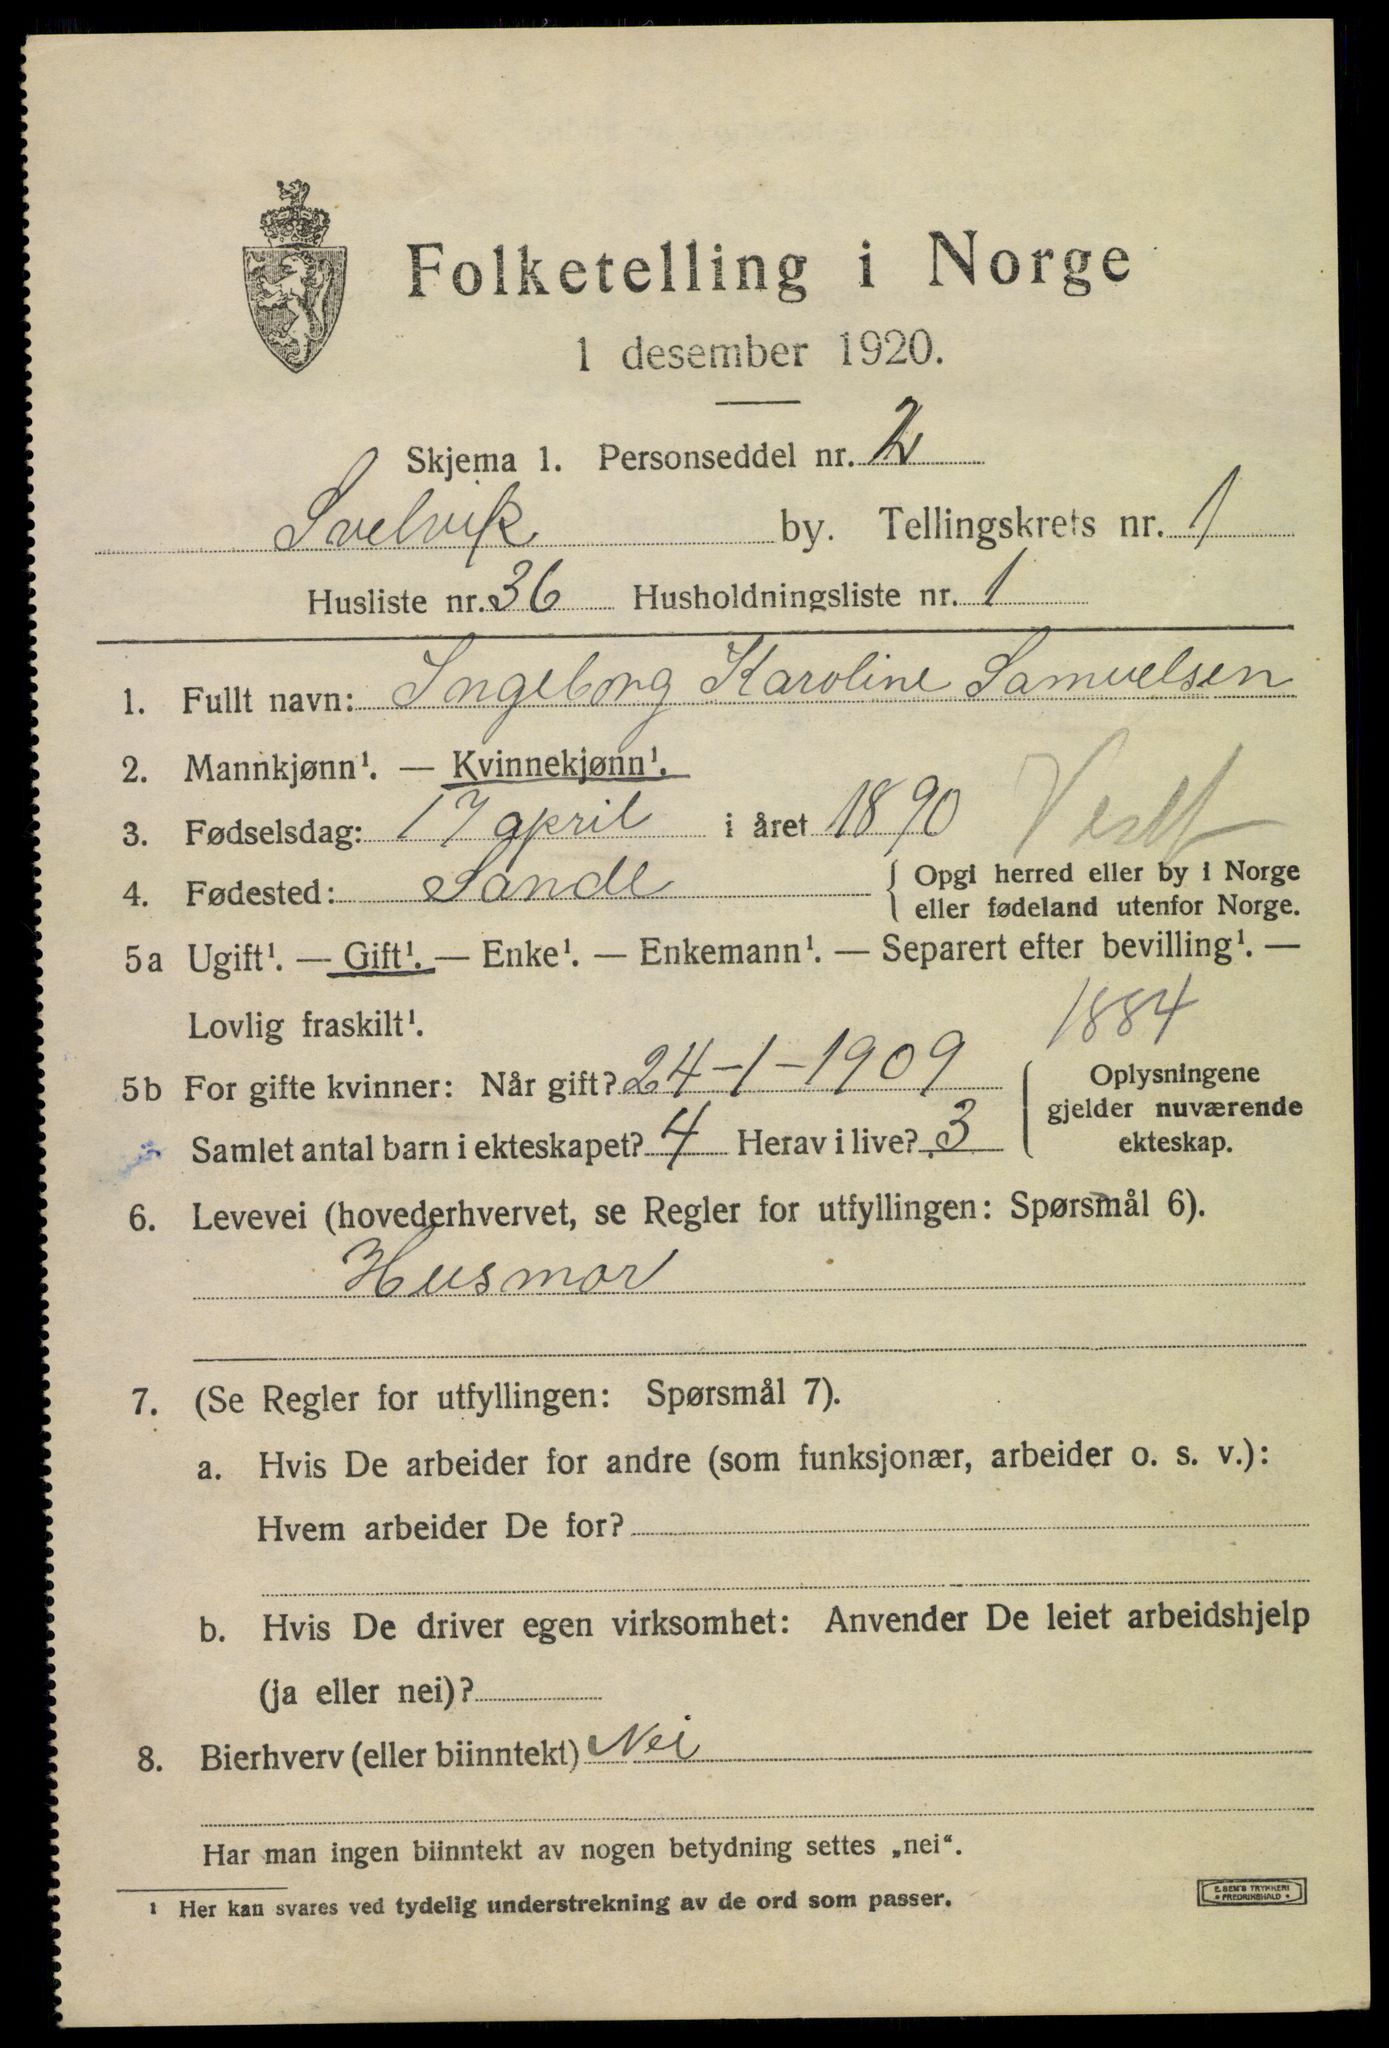 Folketelling i Norge
1 desember 1920.
Skjema 1. Personseddel nr. 2
Svelvik by. Tellingskrets nr. 1
Husliste nr. 36 Husholdningsliste nr. 1
1. Fullt navn: Ingeborg Karoline Samuelsen
2. Mannkjønn¹. — Kvinnekjønn¹.
3. Fødselsdag: 17 april i året 1890
4. Fødested: Sande { Opgi herred eller by i Norge
eller fødeland utenfor Norge.
5a Ugift¹. — Gift¹. — Enke¹. — Enkemann¹. — Separert efter bevilling¹. —
Lovlig fraskilt¹.
1884
5b For gifte kvinner: Når gift? 24-1-1909
Samlet antal barn i ekteskapet? 4 Herav i live? 3
Oplysningene
gjelder nuværende
ekteskap.
6. Levevei (hovederhvervet, se Regler for utfyllingen: Spørsmål 6).
Husmor
7. (Se Regler for utfyllingen: Spørsmål 7).
a. Hvis De arbeider for andre (som funksjonær, arbeider o. s. v.):
Hvem arbeider De for?
b. Hvis De driver egen virksomhet: Anvender De leiet arbeidshjelp
(ja eller nei)?
8. Bierhverv (eller biinntekt) Nei
Har man ingen biinntekt av nogen betydning settes „nei“.
¹ Her kan svares ved tydelig understrekning av de ord som passer.
E. SEM'S TRYKKERI
• FREDRIKSHALD •